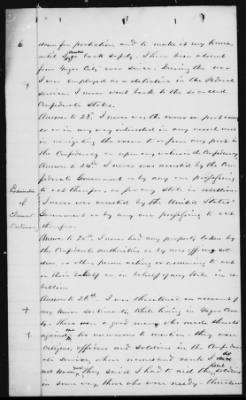 6
down for protection and to make it my home
until I could get back safely. I have been absent
from Fayer Coty ever since. During the war
I was employed as a detective in the Federal
service. I never went back to the so-called
Confederate States.
Answer to 23d. I never was the owner or part owner
or in any way interested in any vessel used
in navigating the waters to or from any port in
the Confederacy
Answer to 24th. I was never arrested by the Con-
federate Government or by any one professing
to act therefor, or for any state in rebellion.
I never was arrested by the United States
Government or by any one professing to act
therefor.
Examination
of
Claimant
Continued
Answer to 25th. I never had any property taken by
the Confederate authorities or by any officer, sol-
dier, or other person acting or assuming to act
in their behalf or on behalf of any State in re-
bellion.
Answer to 26th. I was threatened on account of
my Union sentiments while living in
There were a good many who made threats
against me too numerous to mention. They were
citizens, officers and soldiers in the Confeder-
ate service, whose names and rank I did
not know. They said I had to aid the soldiers
in some way, they who were needy.